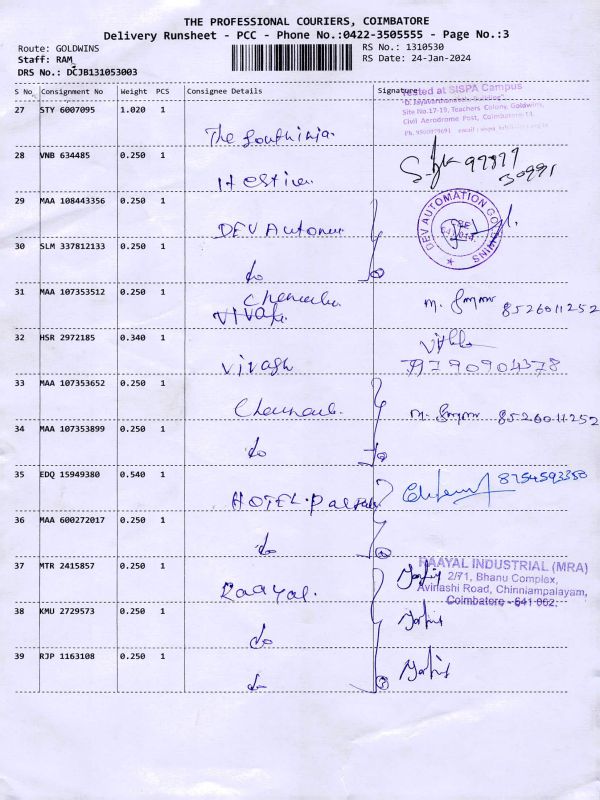 THE PROFESSIONAL COURIERS, COIMBATORE
Delivery Runsheet - PCC - Phone No.:0422-3505555 - Page No.:3
Route: GOLDWINS
RS No.: 1310530
Staff: RAM
RS Date: 24-Jan-2024
DRS No.: DCJB131053003
S No Consignment No Weight PCS Consignee Details Signature
Tested at SISPA Campus
Site No.17-19, Teachers Colony, Goldwins,
Civil Aerodrome Post, Coimbatore-14
27 STY 6007095 1.020 1
28 VNB 634485 0.250 1
29 MAA 108443356 0.250 1 DEV Automa
DEV AUTOMATION GOLDWINS
30 SLM 337812133 0.250 1 do
31 MAA 107353512 0.250 1 8526011252
32 HSR 2972185 0.340 1 Vivagh
9790904378
33 MAA 107353652 0.250 1 8526011252
34 MAA 107353899 0.250 1 do
35 EDQ 15949380 0.540 1 HOTEL. 8754593350
36 MAA 600272017 0.250 1 do
37 MTR 2415857 0.250 1 Raayal.
RAAYAL INDUSTRIAL (MRA)
2/71, Bhanu Complex,
Avinashi Road, Chinniampalayam,
Coimbatore - 641 062.
38 KMU 2729573 0.250 1 do
39 RJP 1163108 0.250 1 do